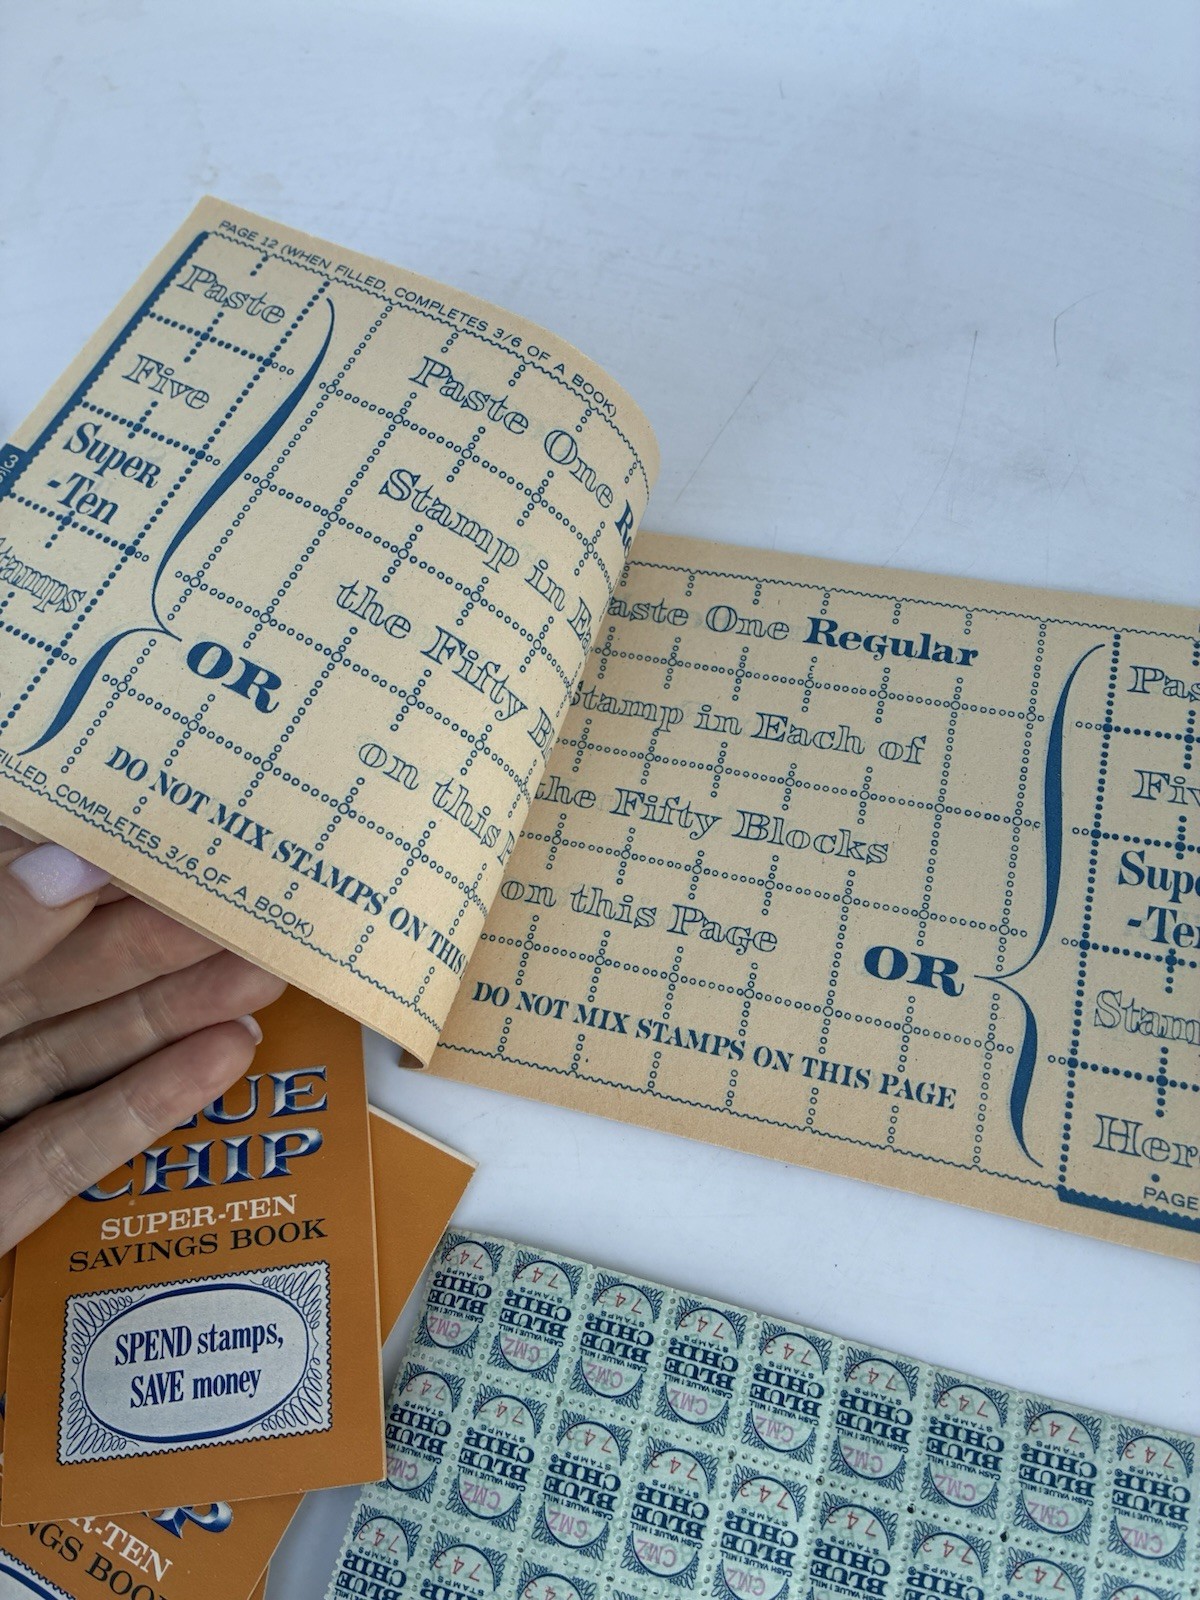 PAGE 12 (WHEN FILLED, COMPLETES 3/6 OF A BOOK)
Paste
Five
Super
-Ten
Paste One
Stamp in
the Fifty
on this
OR
DO NOT MIX STAMPS ON THIS
FILLED, COMPLETES 3/6 OF A BOOK)
Paste One Regular
Stamp in Each of
the Fifty Blocks
on this Page
OR
DO NOT MIX STAMPS ON THIS PAGE
-Ten
PAGE
BLUE
CHIP
SUPER-TEN
SAVINGS BOOK
SPEND stamps,
SAVE money
R-TEN
NGS BOOK
743
STAMPS
CHIP
BLUE
CASH VALUE 1 MILL
CMZ